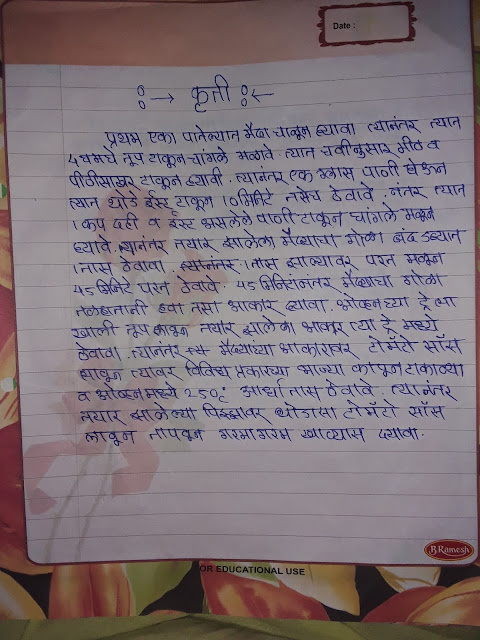 Date :
कृती
प्रथम एका पातेल्यात मैदा चाळून घ्यावा त्यानंतर त्यात
4 चमचे तूप टाकून चांगले मळावे त्यात चवीनुसार मीठ व
पीठीसाखर टाकून घ्यावी. त्यानंतर एक ग्लास पाणी घेऊन
त्यात थोडे ईस्ट टाकून 10 मिनिटे तसेच ठेवावे. नंतर त्यात
1 कप दही व ईस्ट असलेले पाणी टाकून चांगले मळून
घ्यावे. त्यानंतर तयार झालेला मैद्याचा गोळा बंद डब्यात
1 तास ठेवावा. त्यानंतर 1 तास झाल्यावर परत मळून
45 मिनिटे परत ठेवावे. 45 मिनिटांनंतर मैद्याचा गोळा
तळहातानी हवा तसा आकार द्यावा. ओव्हनच्या ट्रे ला
खाली तूप लावून तयार झालेला आकार त्या ट्रे मध्ये
ठेवावा. त्यानंतर मैद्याच्या आकारावर टोमॅटो सॉस
लावून त्यावर विविध प्रकारच्या भाज्या कापून टाकाव्या
व ओव्हनमध्ये 250°c अर्धा तास ठेवावे. त्यानंतर
तयार झालेल्या पिझ्झावर थोडासा टोमॅटो सॉस
लावून तापवून गरमागरम खाव्यास द्यावा.
B.Ramesh
FOR EDUCATIONAL USE